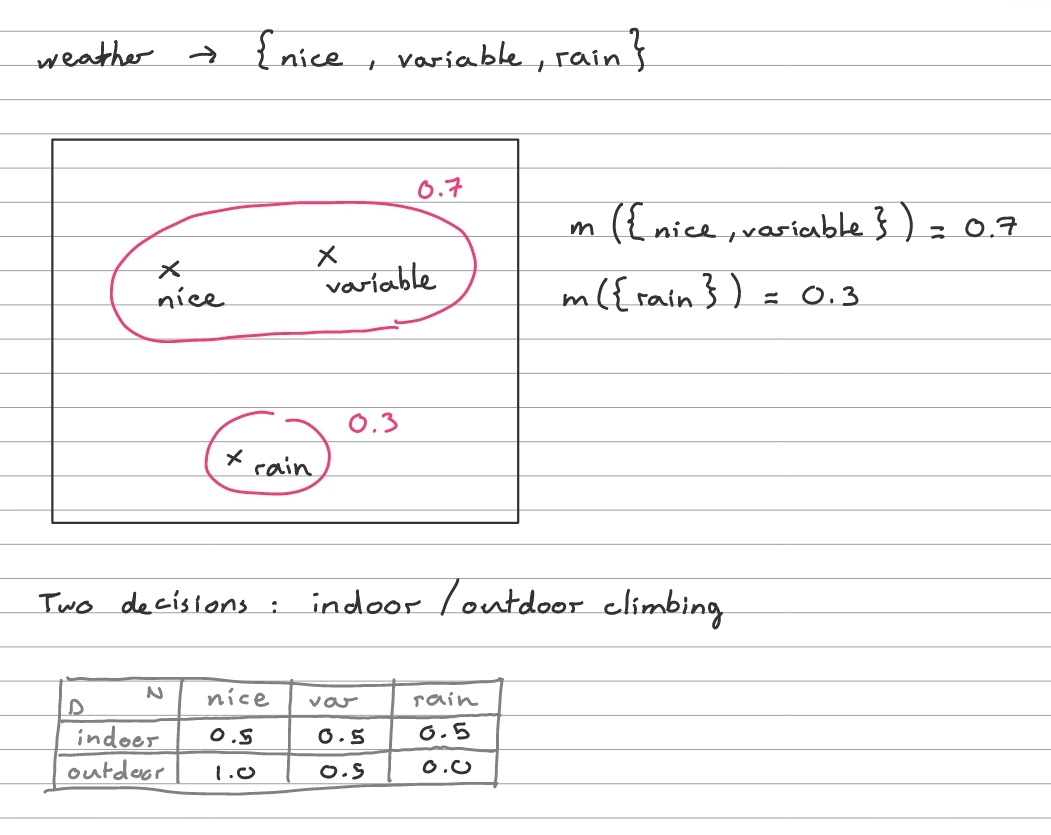 weather → {nice , variable , rain}
0.7
m ({nice , variable}) = 0.7
x x
nice variable
m ({rain}) = 0.3
0.3
x rain
Two decisions : indoor / outdoor climbing
D N nice var rain
indoor 0.5 0.5 0.5
outdoor 1.0 0.5 0.0